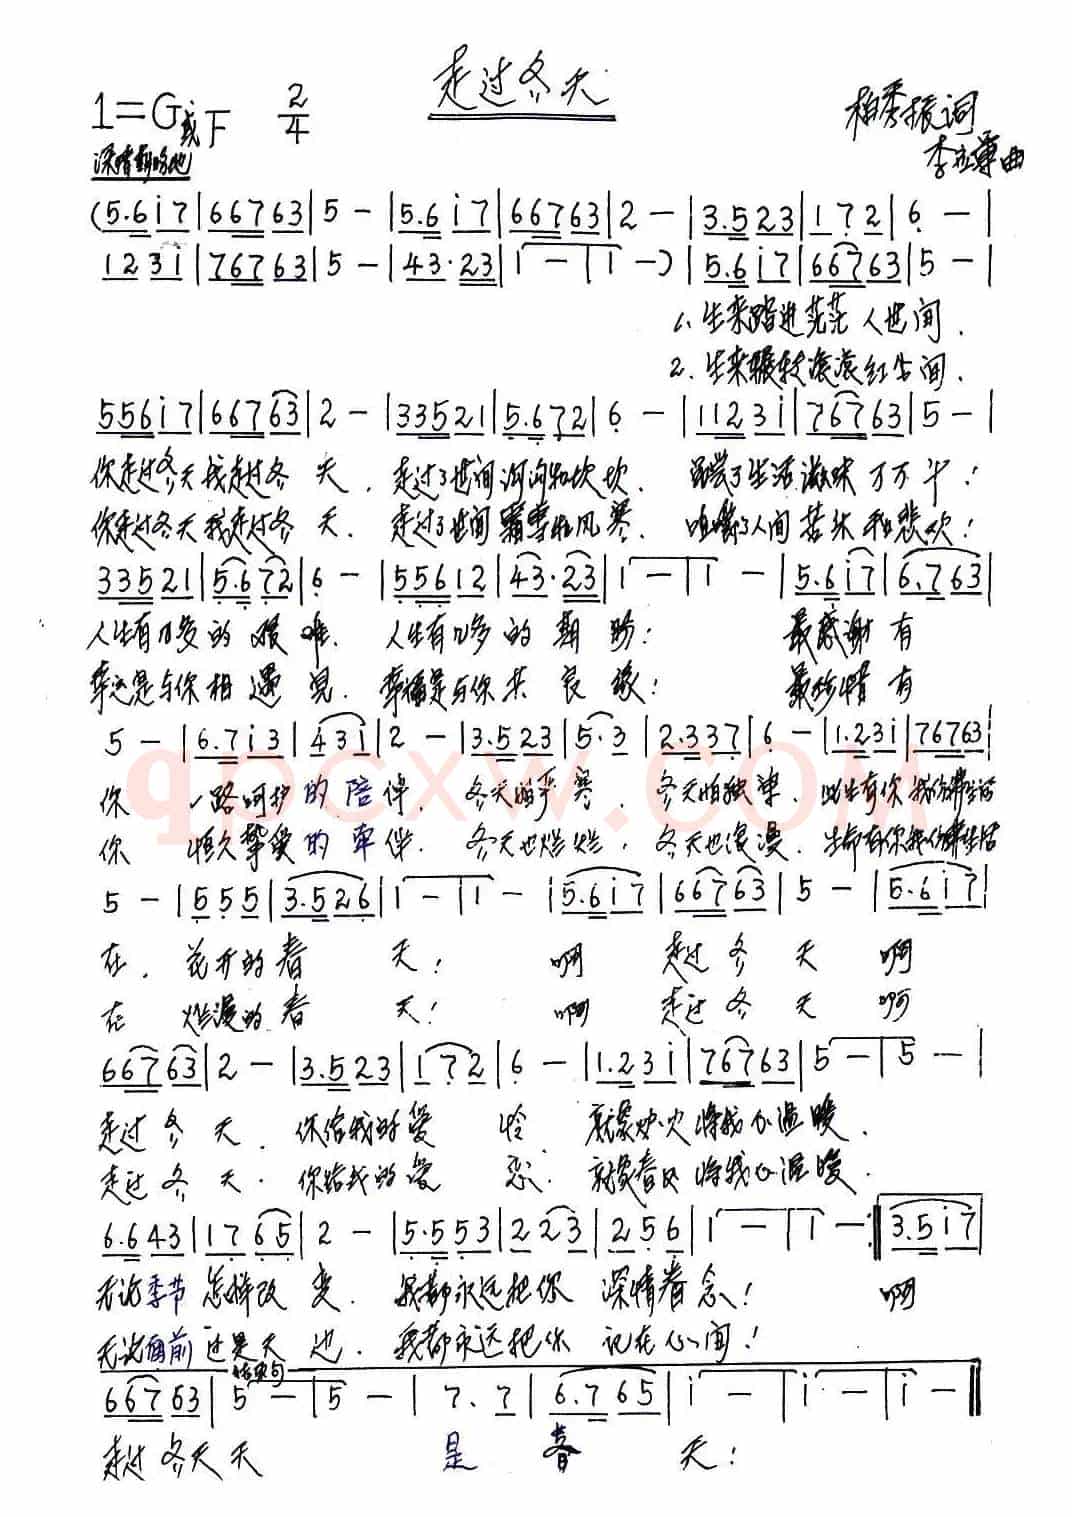 走过冬天
1=G或F 2/4
柏秀振词
李立尊曲
深情数哈地
(5.6i7|66763|5-|5.6i7|66763|2-|3.523|172|6-|
123i|76763|5-|43·23|1-|1-)|5.6i7|66763|5-|
1.生来踏进茫茫人世间.
2.生来辗转滚滚红尘间.
556i7|66763|2-|33521|5.672|6-|1123i|76763|5-|
你走过冬天我走过冬天.走过了世间沟沟和坎坎.品尝了生活滋味万万千!
你走过冬天我走过冬天.走过了世间霜雪和风寒.咀嚼了人间苦乐和悲欢!
33521|5.672|6-|55612|43·23|1-|1-|5.6i7|6.763|
人生有几多的艰难.人生有几多的期盼:最感谢有
幸运是与你相遇见.幸福是与你共良缘:最珍惜有
5-|6.7i3|43i|2-|3.523|5.3|2.337|6-|1.23i|76763|
你一路呵护的陪伴.冬天的严寒.冬天怕独单.此生有你我的生活
你恒久挚爱的牵伴.冬天也烂烂,冬天也浪漫.生命有你我的生活
5-|555|3.526|1-|1-|5.6i7|66763|5-|5.6i7|
在.花开的春天!啊走过冬天啊
在烂漫的春天!啊走过冬天啊
66763|2-|3.523|172|6-|1.23i|76763|5-|5--|
走过冬天.你给我的爱怜就像炉火将我心温暖.
走过冬天.你给我的爱恋.就像春风将我心温暖.
6.643|1765|2-|5.553|223|256|1-|1-:‖3.5i7|
无论季节怎样改变.我都永远把你深情眷念!啊
无论眼前还是天边.我都永远把你记在心间!
结束句
66763|5-|5-|7.7|6.765|i-|i-|i-‖
走过冬天天是春天!
qpcxw.COM